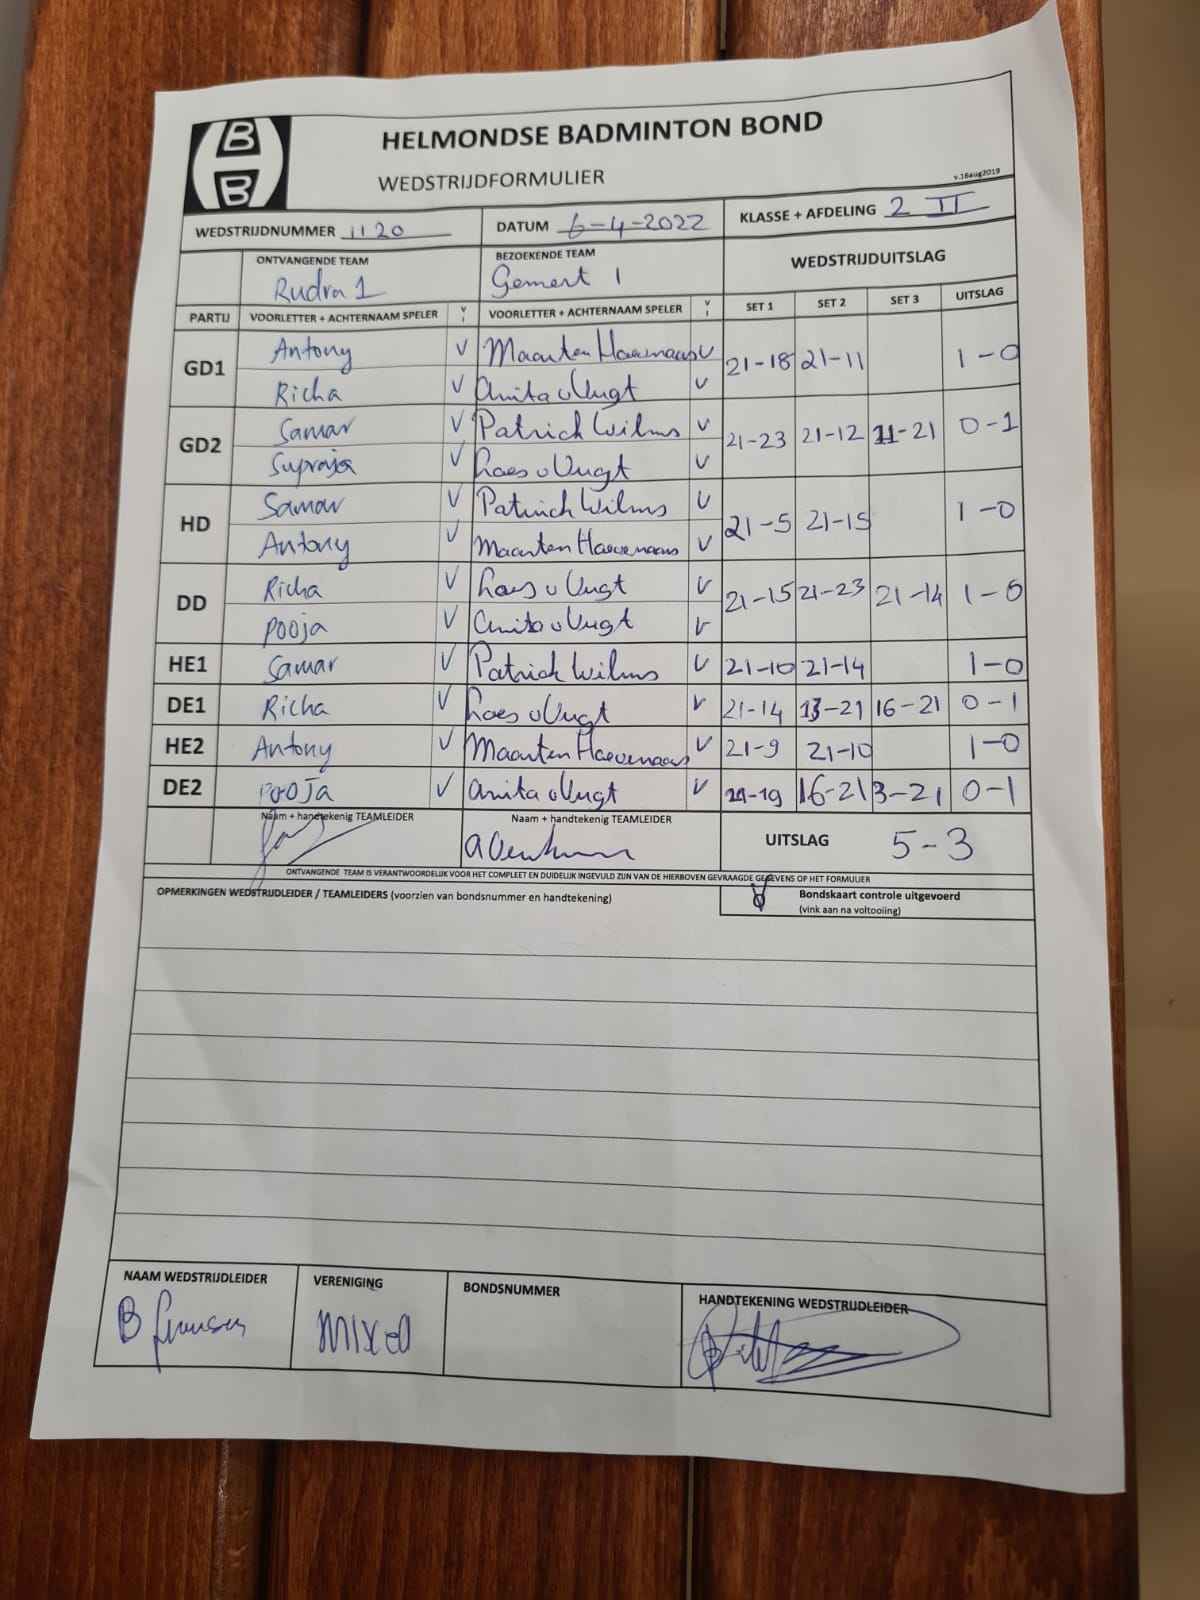 HELMONDSE BADMINTON BOND
WEDSTRIJDFORMULIER
v.18aug2019
WEDSTRIJDNUMMER 1120 DATUM 6-4-2022 KLASSE + AFDELING 2 II
ONTVANGENDE TEAM BEZOEKENDE TEAM WEDSTRIJDUITSLAG
Rudra 1 Gemert 1
PARTIJ VOORLETTER + ACHTERNAAM SPELER V I VOORLETTER + ACHTERNAAM SPELER V I SET 1 SET 2 SET 3 UITSLAG
GD1 Antony V Maarten Haevenaars V 21-18 21-11 1-0
Richa V Anita v Vugt V
GD2 Samar V Patrick Wilms V 21-23 21-12 11-21 0-1
Supraja V Loes v Vugt V
HD Samar V Patrick Wilms V 21-5 21-15 1-0
Antony V Maarten Haevenaars V
DD Richa V Loes v Vugt V 21-15 21-23 21-14 1-0
Pooja V Anita v Vugt V
HE1 Samar V Patrick Wilms V 21-10 21-14 1-0
DE1 Richa V Loes v Vugt V 21-14 13-21 16-21 0-1
HE2 Antony V Maarten Haevenaars V 21-9 21-10 1-0
DE2 Pooja V Anita v Vugt V 21-19 16-21 3-21 0-1
Naam + handtekenig TEAMLEIDER Naam + handtekenig TEAMLEIDER UITSLAG 5-3
ONTVANGENDE TEAM IS VERANTWOORDELIJK VOOR HET COMPLEET EN DUIDELIJK INGEVULD ZIJN VAN DE HIERBOVEN GEVRAAGDE GEGEVENS OP HET FORMULIER
OPMERKINGEN WEDSTRIJDLEIDER / TEAMLEIDERS (voorzien van bondsnummer en handtekening) Bondskaart controle uitgevoerd
(vink aan na voltooiing)
NAAM WEDSTRIJDLEIDER VERENIGING BONDSNUMMER HANDTEKENING WEDSTRIJDLEIDER
B MIXED